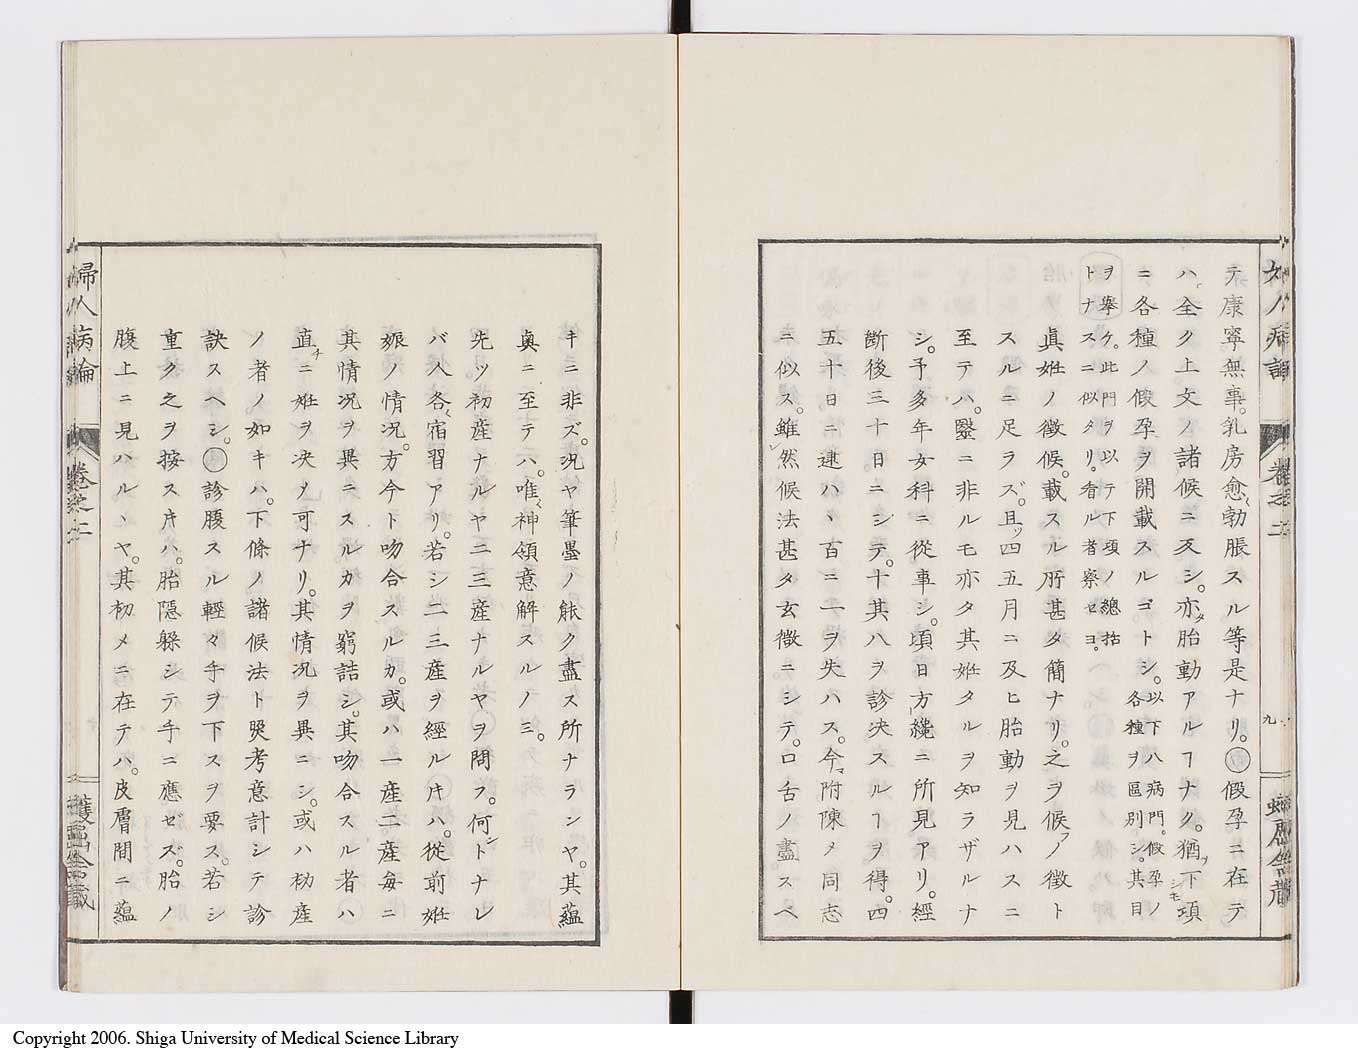 婦人病論 卷之二 九 蜻盧舍蔵
テ康寧無事。乳房愈〻勃脹スル等是ナリ。○假孕ニ在テ
ハ全ク上文ノ諸候ニ反シ。亦タ胎動アルヿナク。猶ヲ下シモ項
ニ各種ノ假孕ヲ開載スルゴトシ。以下ハ病門。假孕ノ
各種ヲ區別シ。其目
ヲ擧ケ。此門ヲ以テ下項ノ總括
トナスニ似タリ。看ル者察セヨ。
眞姙ノ徴候。載スル所甚タ簡ナリ。之ヲ候フノ徴ト
スルニ足ラズ。且ツ四五月ニ及ヒ胎動ヲ見ハスニ
至テハ。毉ニ非ルモ亦タ其姙タルヲ知ラザルナ
シ。予多年女科ニ從事シ。頃日方纔ニ所見アリ。經
斷後三十日ニシテ。十其八ヲ診决スルヿヲ得。四
五十日ニ逮ハヽ百ニ一ヲ失ハス。今マ附陳メ同志
ニ似ス。雖レ然候法甚タ玄微ニシテ。口舌ノ盡スヘ
キニ非ズ。況ヤ筆墨ノ能ク盡ス所ナランヤ。其蘊
奥ニ至テハ。唯〻神領意解スルノミ。
先ツ初産ナルヤ二三産ナルヤヲ問フ。何ントナレ
バ人各〻宿習アリ。若シ二三産ヲ經ル𪜈ハ。從前姙
娠ノ情况。方今ト吻合スルカ。或ハ一産二産毎ニ
其情况ヲ異ニスルカヲ窮詰シ。其吻合スル者ハ
直チニ姙ヲ决メ可ナリ。其情况ヲ異ニシ。或ハ初産
ノ者ノ如キハ。下條ノ諸候法ト照考意計シテ診
訣スヘシ。○診腹スル輕々手ヲ下スヲ要ス。若シ
重ク之ヲ按ス𪜈ハ。胎隱躱シテ手ニ應ゼズ。胎ノ
腹上ニ見ハルヽヤ。其初メニ在テハ。皮膚間ニ蘊
婦人病論 卷之二
Copyright 2006. Shiga University of Medical Science Library